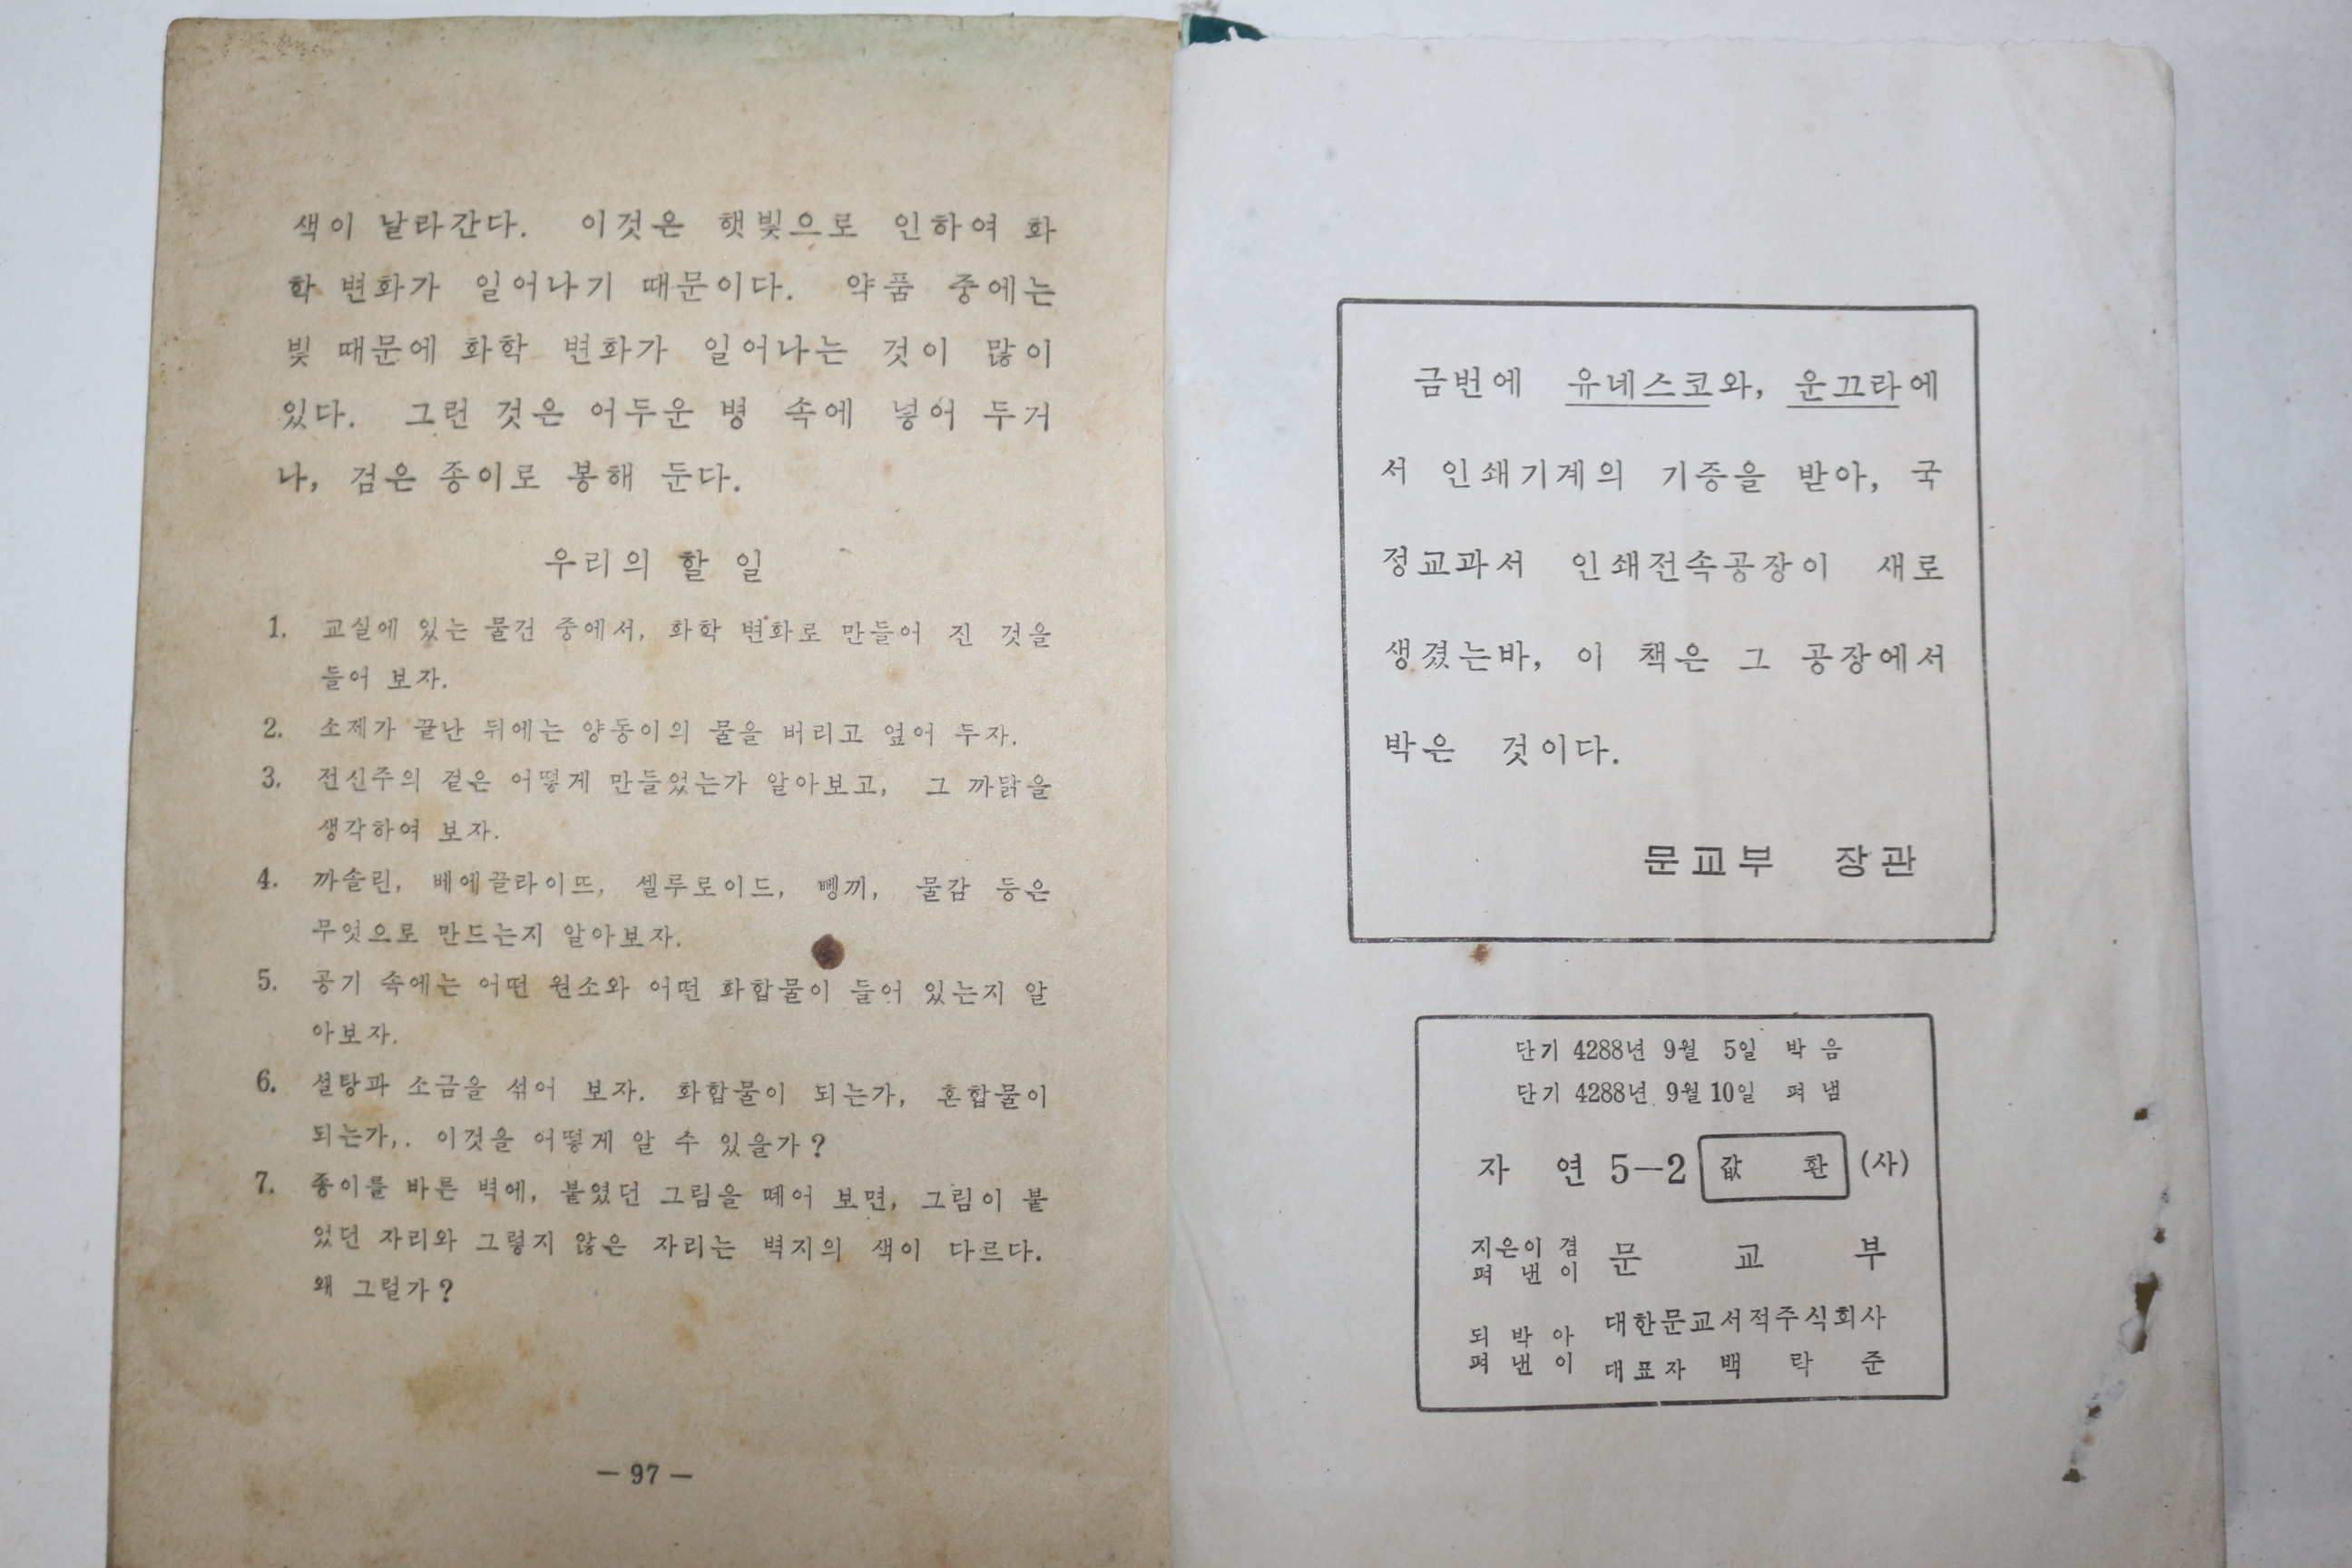 색이 날라간다. 이것은 햇빛으로 인하여 화
학 변화가 일어나기 때문이다. 약품 중에는
빛 때문에 화학 변화가 일어나는 것이 많이
있다. 그런 것은 어두운 병 속에 넣어 두거
나, 검은 종이로 봉해 둔다.
우리의 할 일
1. 교실에 있는 물건 중에서, 화학 변화로 만들어 진 것을
들어 보자.
2. 소제가 끝난 뒤에는 양동이의 물을 버리고 엎어 두자.
3. 전신주의 겉은 어떻게 만들었는가 알아보고, 그 까닭을
생각하여 보자.
4. 까솔린, 베에끌라이뜨, 셀루로이드, 뼁끼, 물감 등은
무엇으로 만드는지 알아보자.
5. 공기 속에는 어떤 원소와 어떤 화합물이 들어 있는지 알
아보자.
6. 설탕과 소금을 섞어 보자. 화합물이 되는가, 혼합물이
되는가,. 이것을 어떻게 알 수 있을가?
7. 종이를 바른 벽에, 붙였던 그림을 떼어 보면, 그림이 붙
었던 자리와 그렇지 않은 자리는 벽지의 색이 다르다.
왜 그럴가?
— 97 —
금번에 유네스코와, 운끄라에
서 인쇄기계의 기증을 받아, 국
정교과서 인쇄전속공장이 새로
생겼는바, 이 책은 그 공장에서
박은 것이다.
문교부 장관
단기 4288년 9월 5일 박음
단기 4288년 9월 10일 펴냄
자 연 5—2 값 환 (사)
지은이 겸
펴 낸 이 문 교 부
되 박 아 대한문교서적주식회사
펴 낸 이 대표자 백 락 준